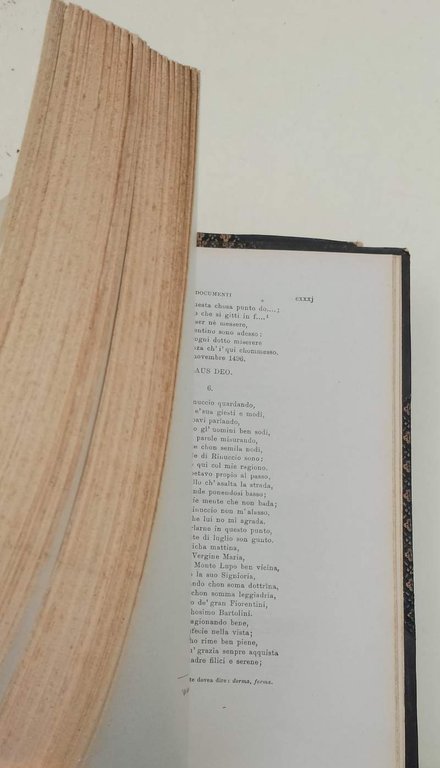 DOCUMENTI cxxxj
esta chosa punto do....;
o che si gitti in f....¹
ser nè messere,
entino sono adesso:
ogni dotto messere
nza ch' i' qui chommesso.
novembre 1496.
AUS DEO.
6.
inuccio quardando,
e' sua giesti e modi,
avi parlando,
o gl' uomini ben sodi,
parole misurando,
e chon semila nodi,
e di Rinuccio sono:
o qui col mie regiono.
petavo propio al passo,
llo ch'asalta la strada,
nde ponendosi basso;
fe mente che non bada;
inuccio non m'alasso,
he lui no mi agrada.
rlarne in questo punto,
te di luglio son gunto.
icha mattina,
Vergine Maria,
Monte Lupo ben vicina,
o la suo Signioria,
ando chon soma dottrina,
chon somma leggiadria,
o de' gran Fiorentini,
hosimo Bartolini.
agionando bene,
afecie nella vista;
ho rime ben piene,
n' grazia senpre aqquista
adre filici e serene;
te dovea dire: derma, forma.